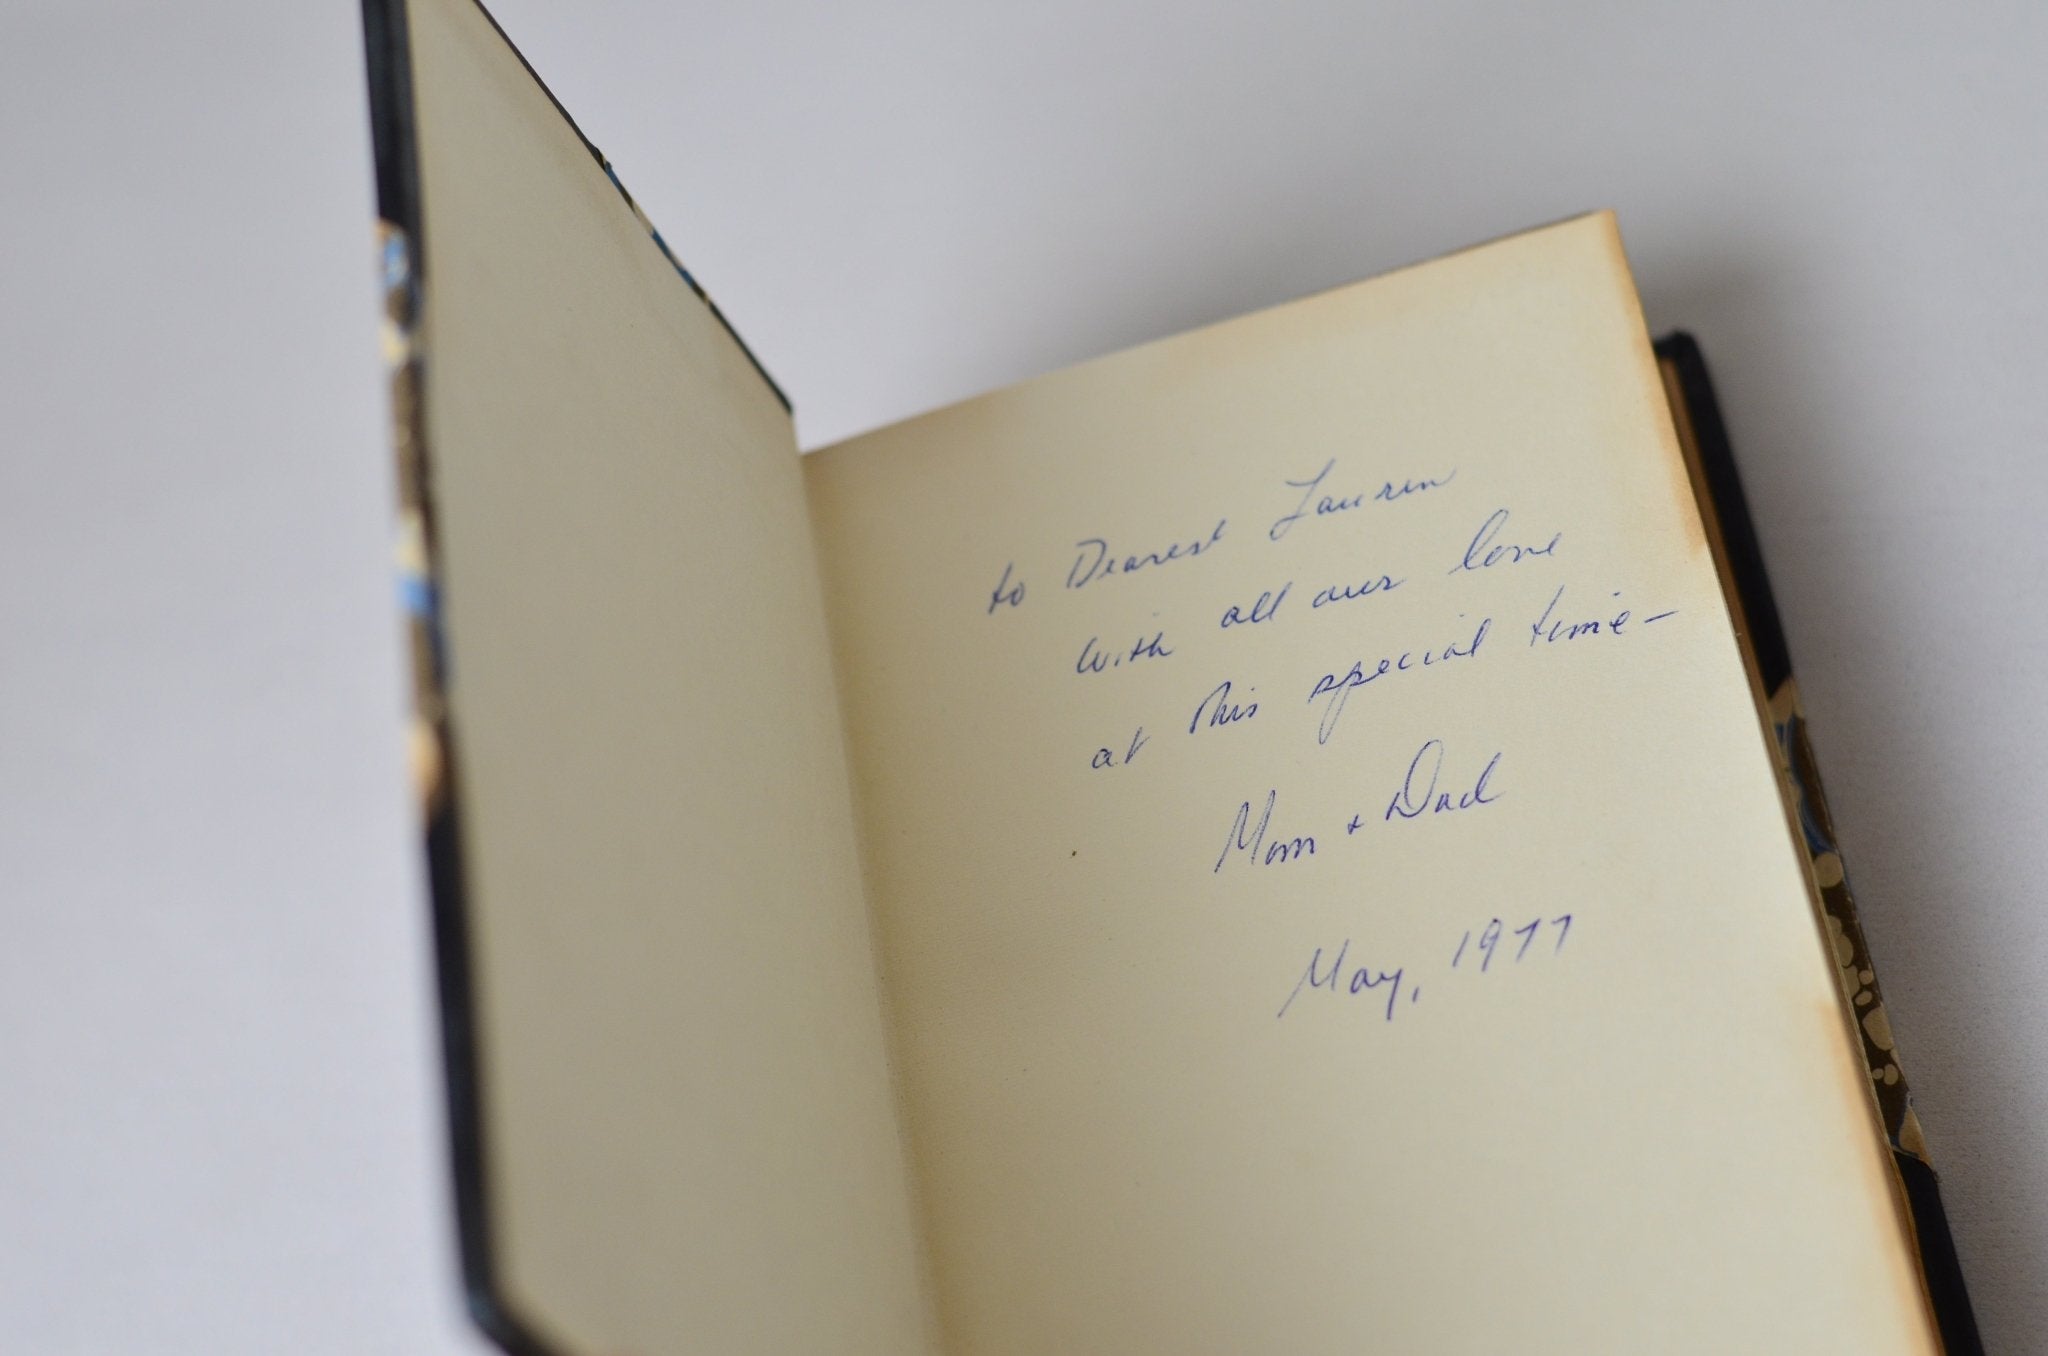 to Dearest Lauren
with all our love
at this special time—
Mom + Dad
May, 1977